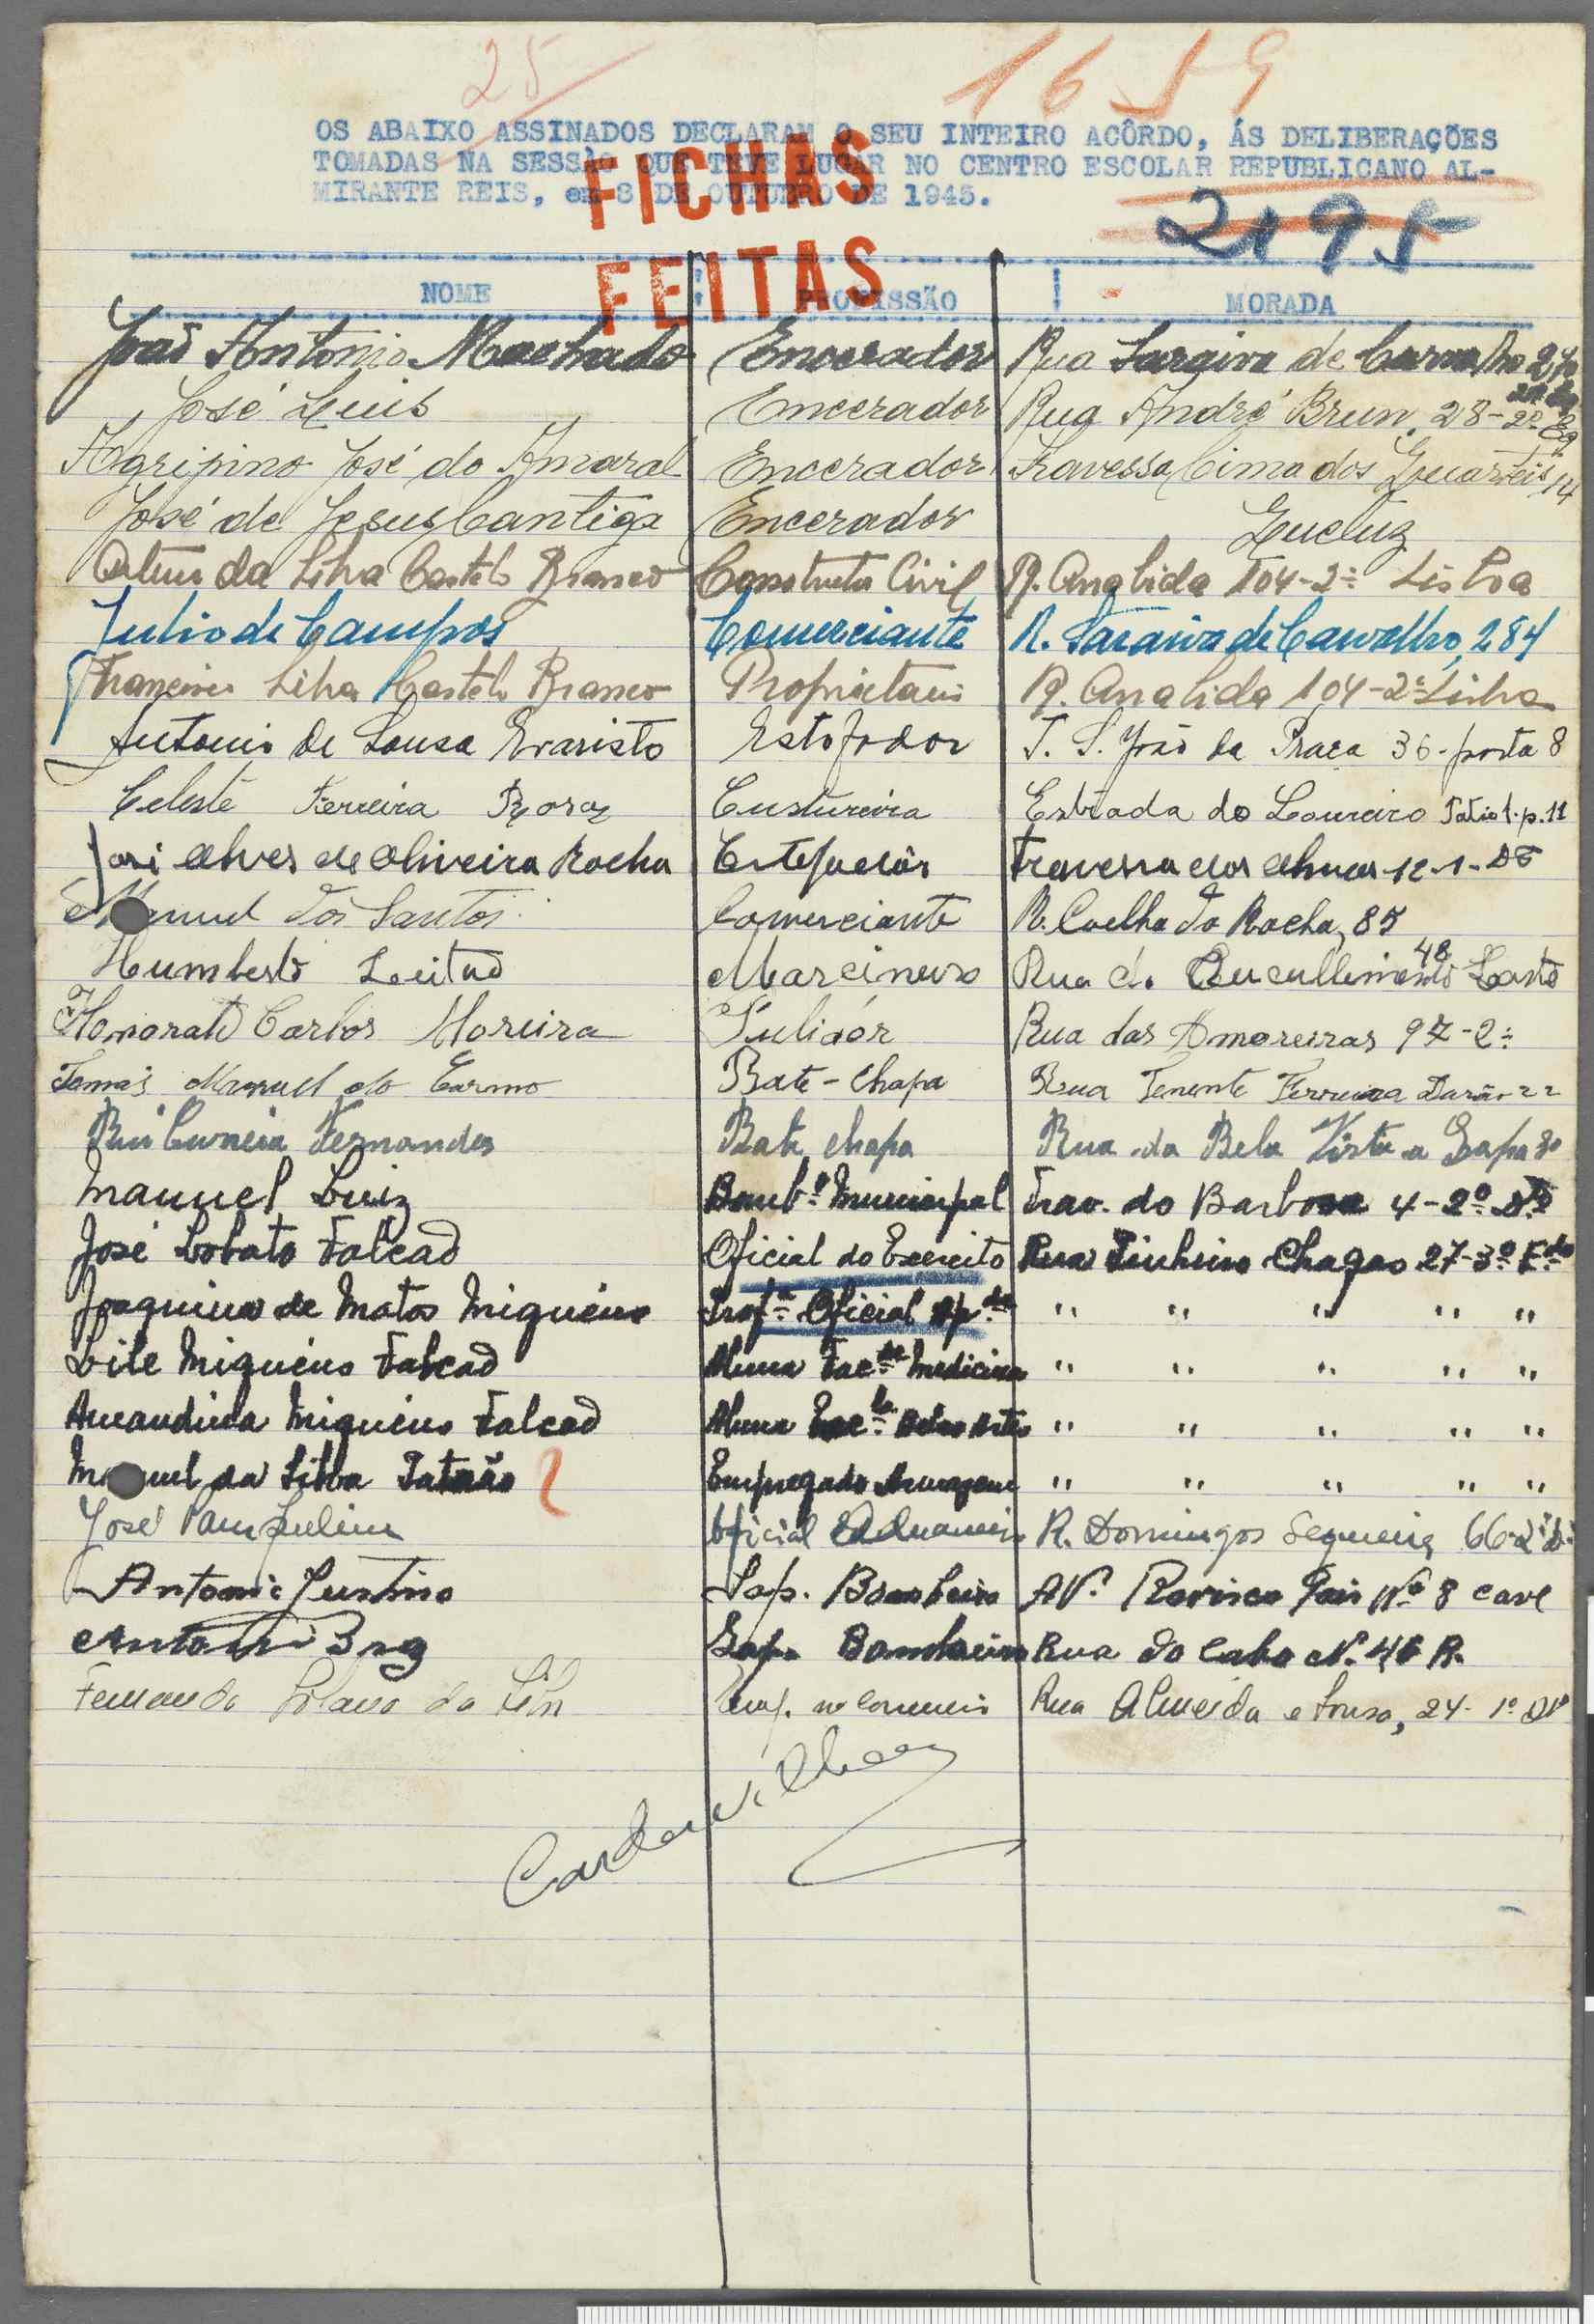 25
1659
OS ABAIXO ASSINADOS DECLARAM O SEU INTEIRO ACÔRDO, ÁS DELIBERAÇÕES
TOMADAS NA SESSÃO QUE TEVE LUGAR NO CENTRO ESCOLAR REPUBLICANO AL-
MIRANTE REIS, em 8 DE OUTUBRO DE 1945.
FICHAS
FEITAS
2195
NOME PROFISSÃO MORADA
João Antonio Machado Encerador Rua Saraiva de Carvalho 270
José Luis Encerador Rua André Brun, 28-2º Eq.
Agripino José do Amaral Encerador Travessa Cima dos Quarteis 14
José de Jesus Cantiga Encerador Queluz
Artur da Silva Castelo Branco Construtor Civil R. Angelida 104-2º Lisboa
Julio de Campos Comerciante R. Saraiva de Carvalho, 284
Francisco Silva Castelo Branco Proprietario R. 104-2º Lisboa
Antonio de Sousa Evaristo Estofador T. S. João da Praça 36-porta 8
Celeste Ferreira Rosa Custureira Estrada do Loureiro Patio 1. p. 11
José Alves de Oliveira Rocha Estofador Travessa das Almas-12-1-DT
Manuel dos Santos Comerciante R. Coelho da Rocha, 85
Humberto Leitão Marcineiro Rua do 48
Honorato Carlos Moreira Pulidor Rua das Amoreiras 97-2º
Tomás Manuel do Carmo Bate-Chapa Rua Tenente Ferreira Durão 22
Rui Correia Fernandes Bate chapa Rua da Bela Vista a Lapa 80
Manuel Luiz Bombº Municipal Trav. do Barbosa 4-2º Dto
José Lobato Falcão Oficial do Exercito Rua Pinheiro Chagas 27-3º Edo
Joaquina de Matos Miguéns Profª Oficial Apda " " " " "
Lile Miguéns Falcão Aluna Facde Medicina " " " " "
Amandina Miguéns Falcão Aluna Escla Belas Artes " " " " "
Manuel da Silva Empregado Armazem " " " " "
José Pampulim Oficial Aduaneiro R. Domingos Sequeira 66-2º D.
Antonio Justino Sap. Bombeiro AV. Rovisco Pais Nº 8 cave
Antonio Sap. Bombeiro Rua do Cabo Nº 46 R.
Fernando da Silva Emp. no Comercio Rua Almeida e Sousa, 24-1º Dº